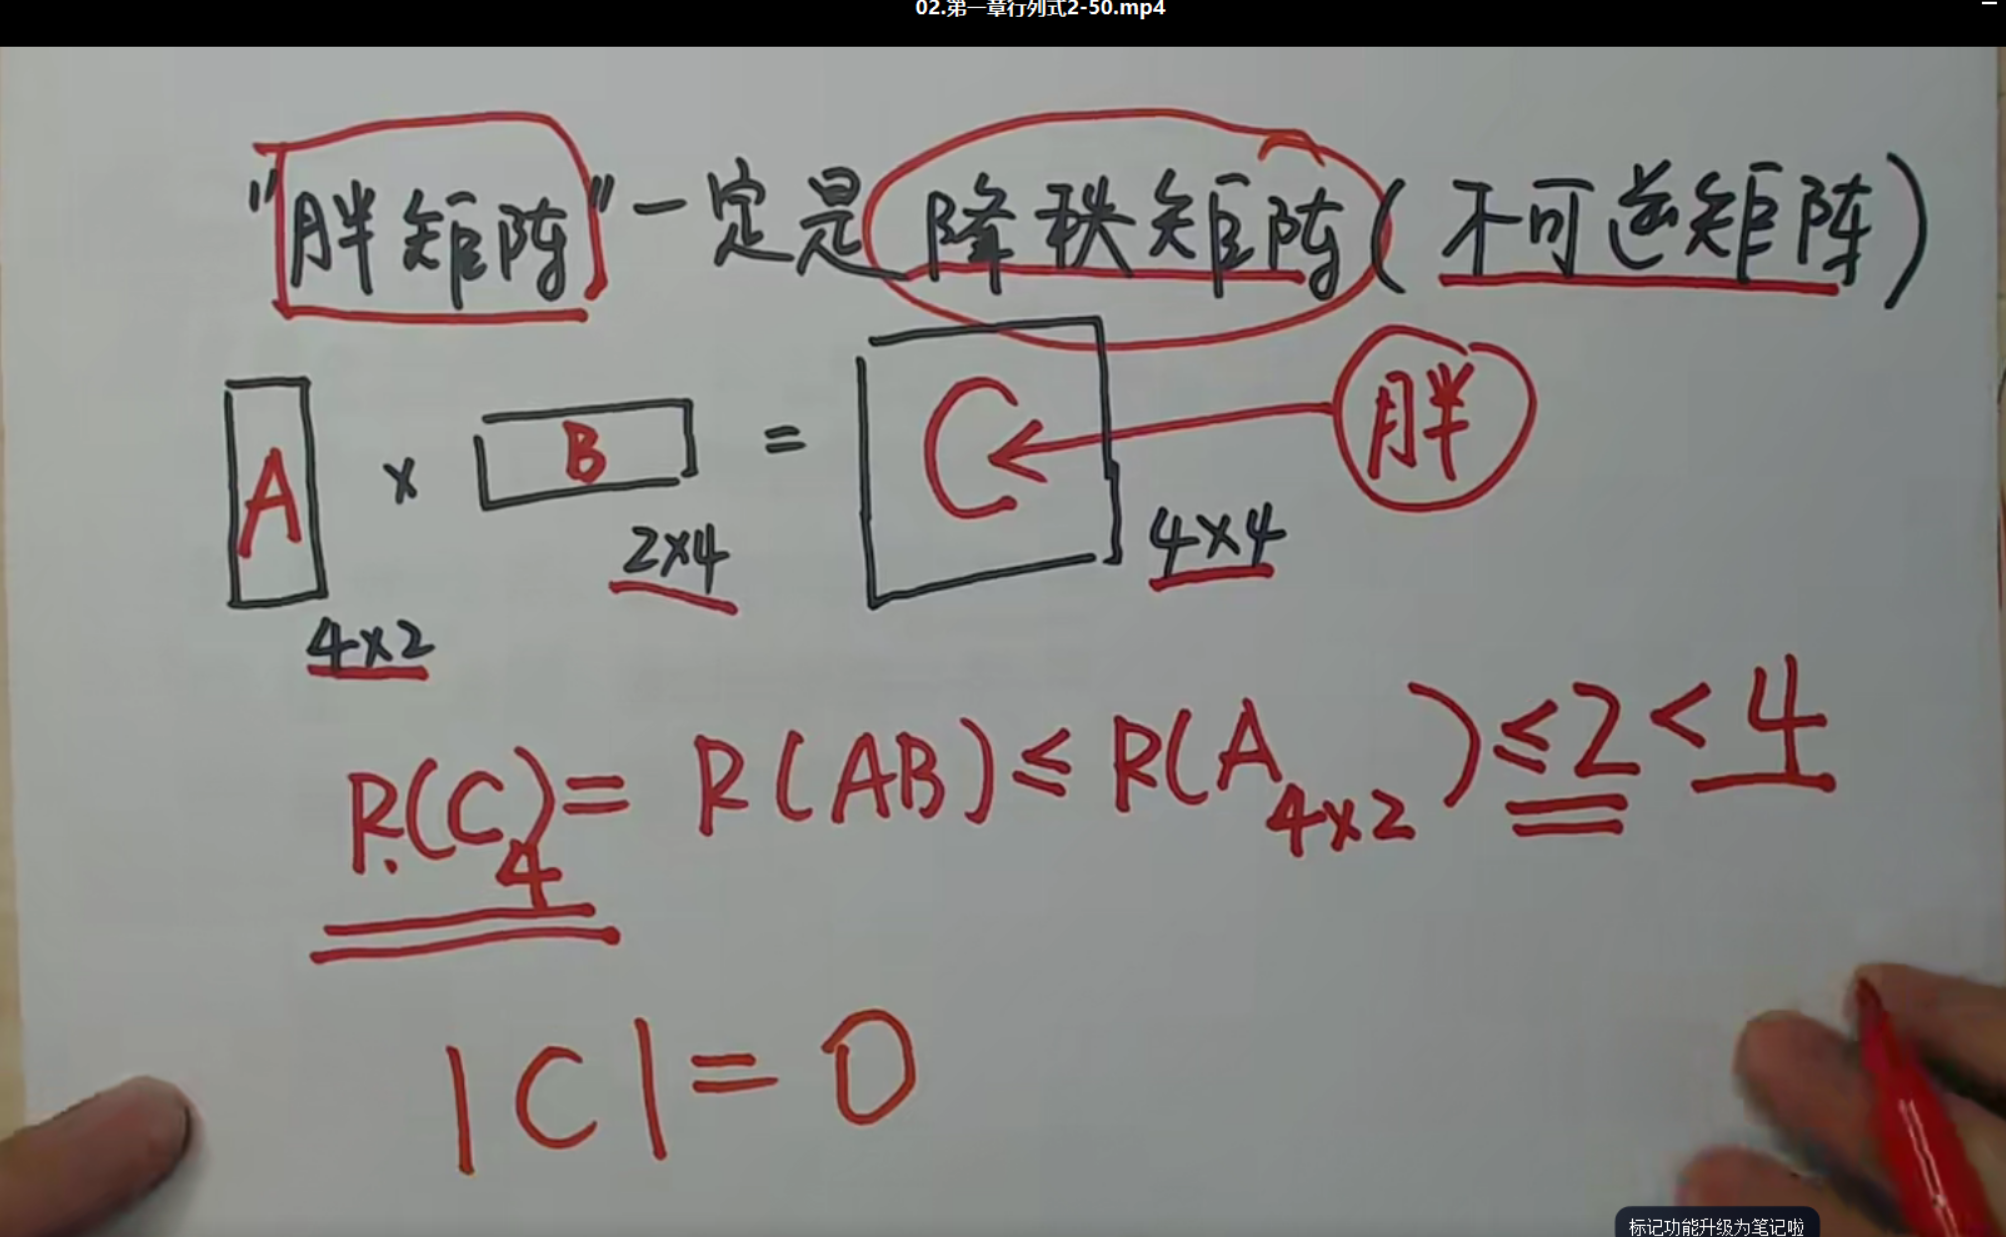 02.第一章行列式2-50.mp4
"胖矩阵"一定是降秩矩阵(不可逆矩阵)
A × B = C 胖
4×2 2×4 4×4
R(C₄)= R(AB)≤R(A₄ₓ₂)≤2<4
|C|=0
标记功能升级为笔记啦